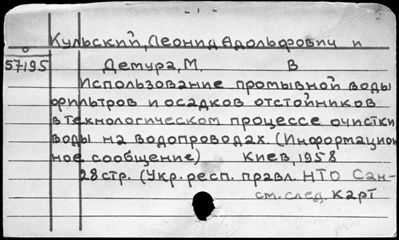 - 1 -
Кульский, Леонид Адольфович и
57195 Демура, М. В
Использование промывной воды
фильтров и осадков отстойников
в технологическом процессе очистки
воды на водопроводах (Информацион
ное сообщение) Киев, 1958
28 стр. (Укр. респ. правл. НТО Сан-
см. след. карт